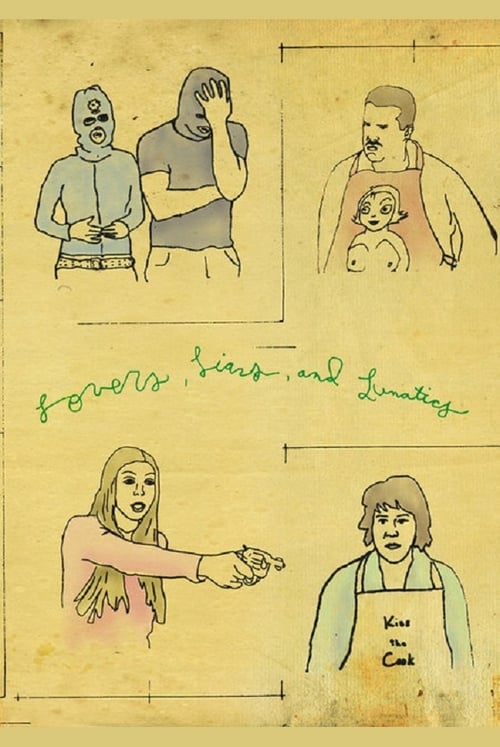 Lovers, Liars, and Lunatics
Kiss
the
Cook